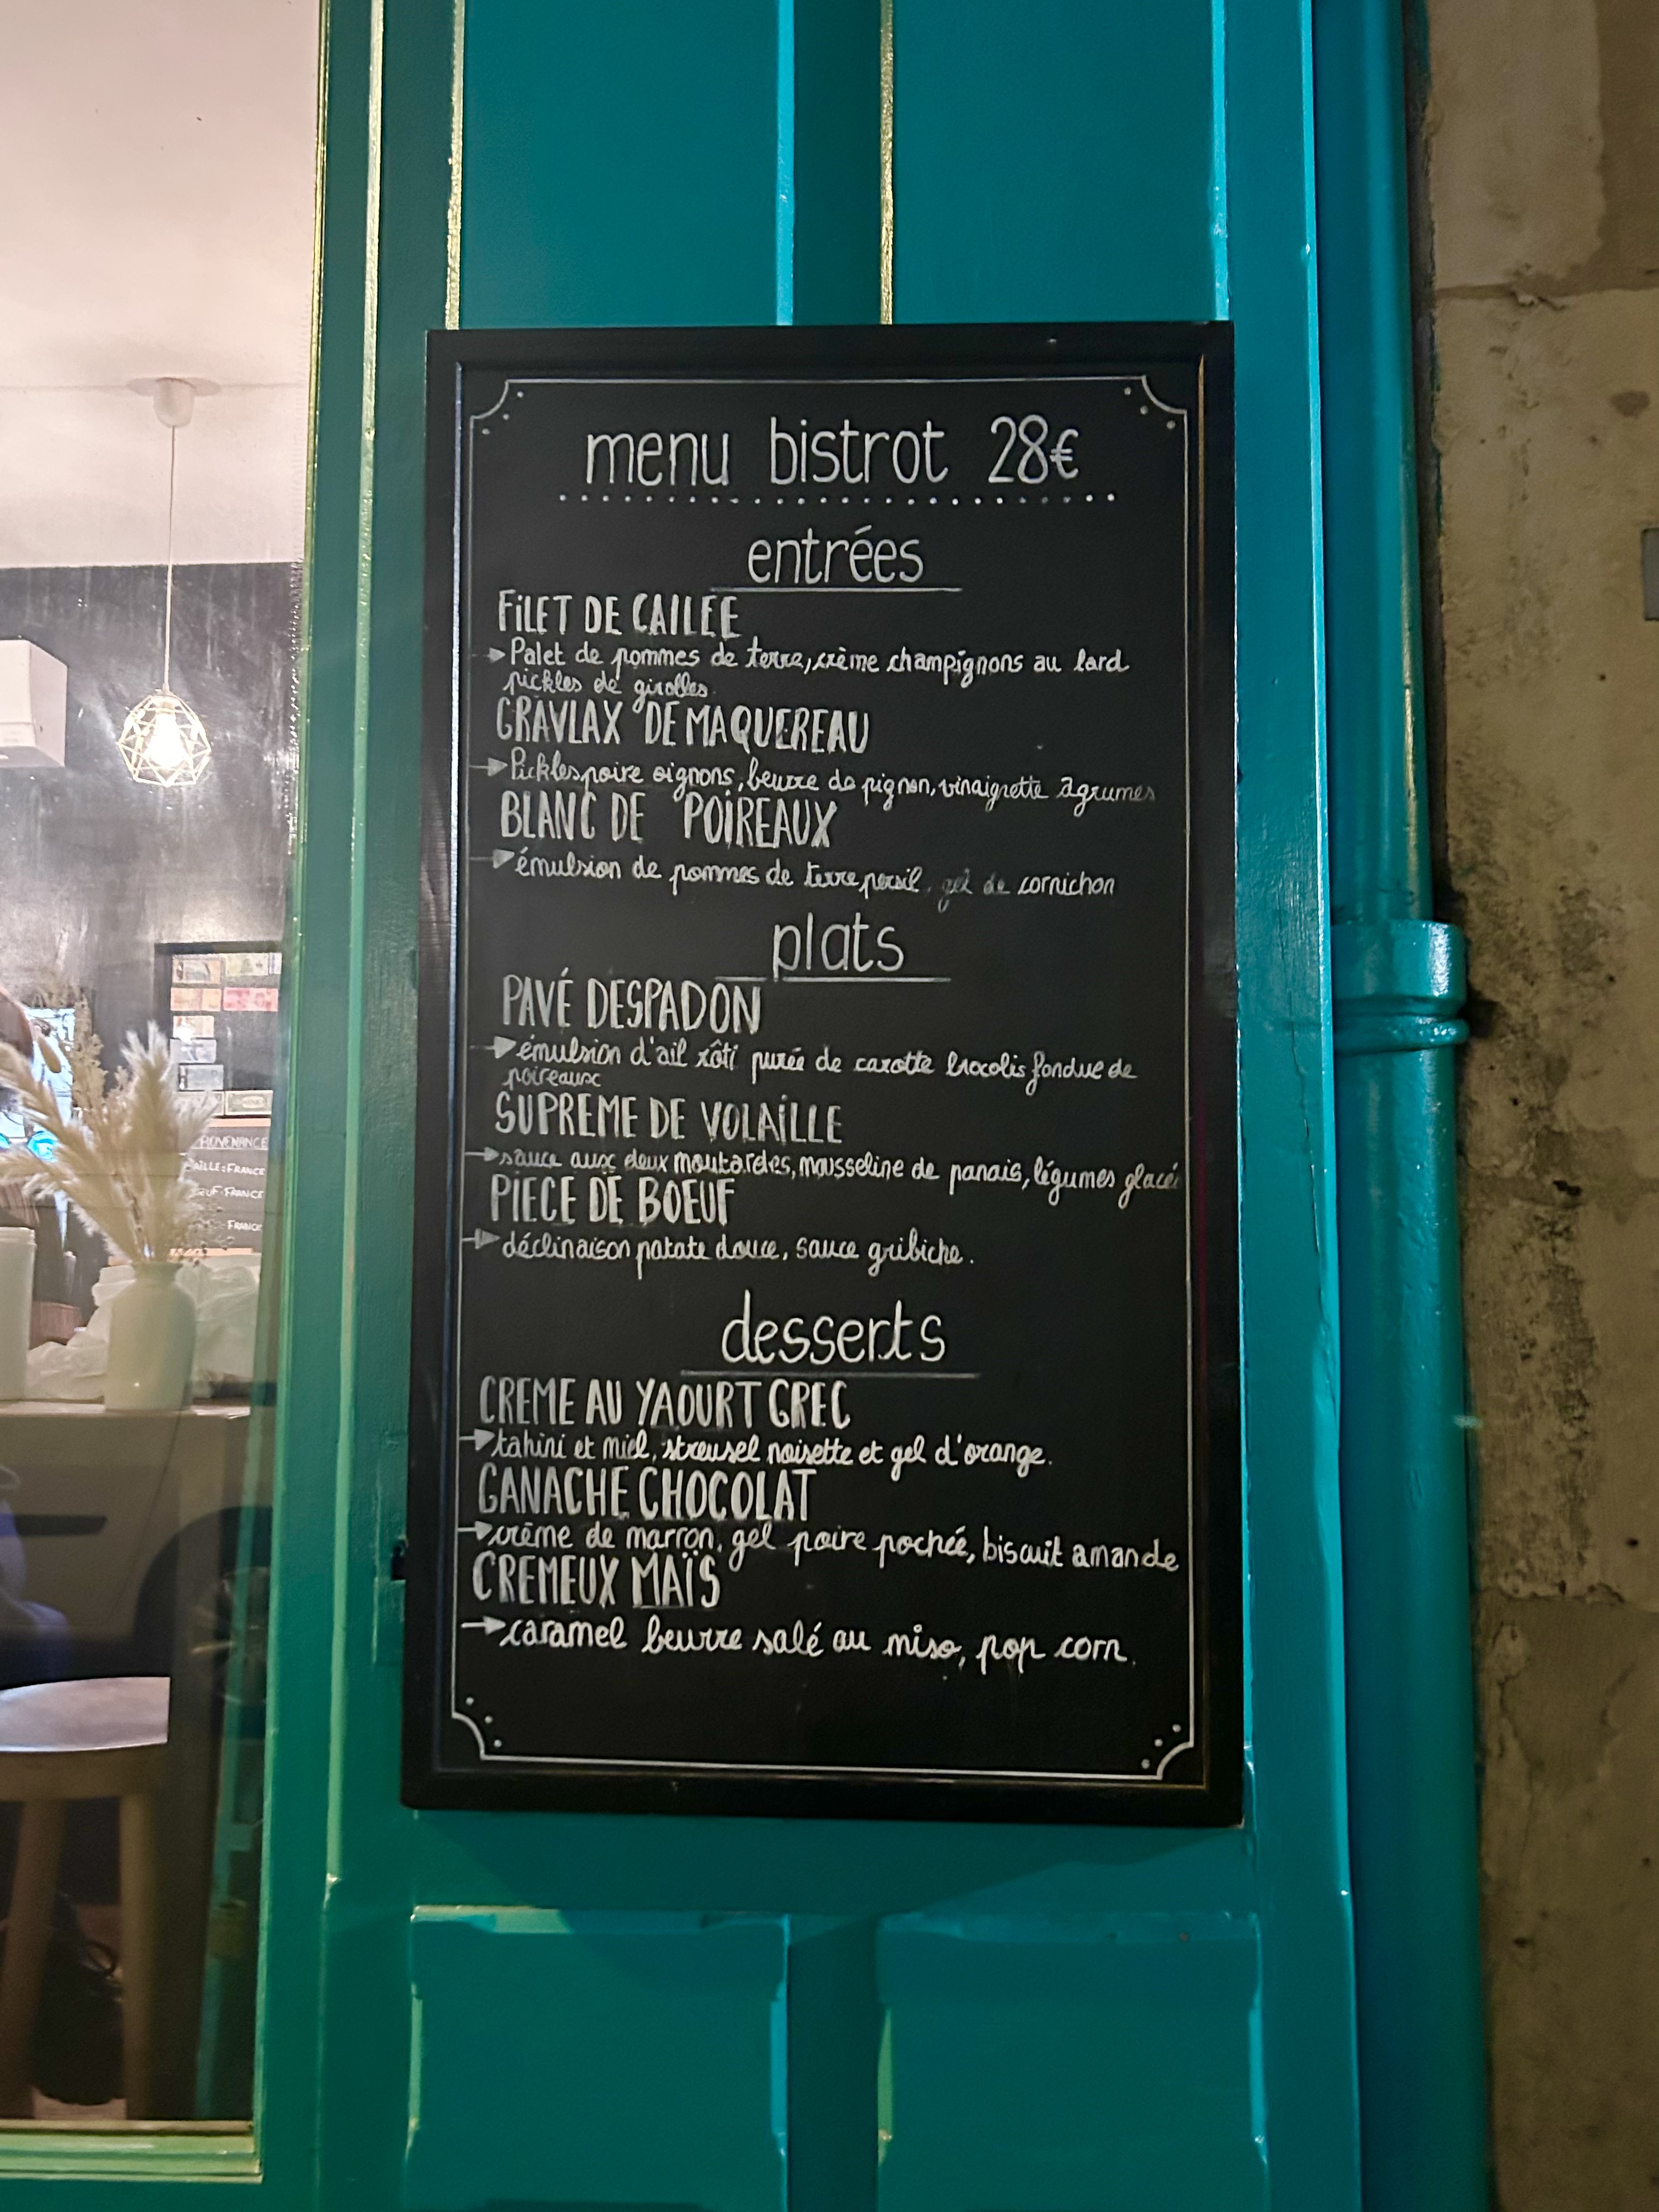 menu bistrot 28€
entrées
FiLET DE CAILLE
Palet de pommes de terre, crème champignons au lard
pickles de girolles.
GRAVLAX DE MAQUEREAU
Pickles poire oignons, beurre de pignon, vinaigrette agrumes
BLANC DE POIREAUX
émulsion de pommes de terre persil, gel de cornichon
plats
PAVÉ DESPADON
émulsion d'ail rôti purée de carotte brocolis fondue de
poireaux
SUPREME DE VOLAILLE
sauce aux deux moutardes, mousseline de panais, légumes glacés
PIECE DE BOEUF
déclinaison patate douce, sauce gribiche.
desserts
CREME AU YAOURT GREC
tahini et miel, streusel noisette et gel d'orange.
GANACHE CHOCOLAT
crème de marron, gel poire pochée, biscuit amande
CREMEUX MAÏS
caramel beurre salé au miso, pop corn.
PROVENANCE
AILLE: FRANCE
OEUF: FRANCE
FRANCE